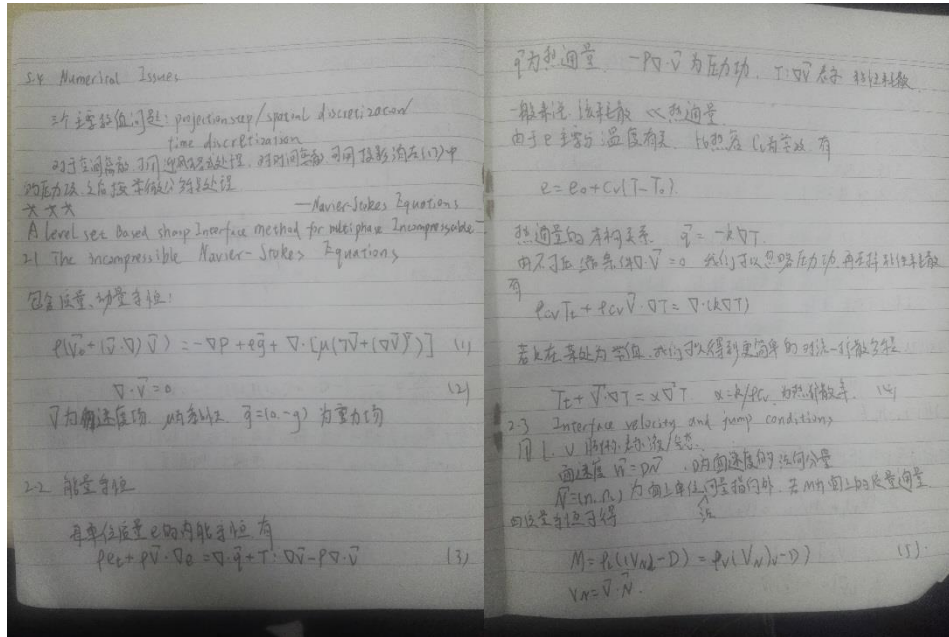 5.4 Numerical Issues
三个主要数值问题: projection step/spatial discretization/
time discretization
对于空间离散,可用迎风格式处理,对时间离散可用投影法在(1.3)中
的压力项,之后按常微分方程处理
☆ ☆ ☆ —Navier-Stokes Equations
A level set Based sharp Interface method for multiphase Incompressible
2.1 The incompressible Navier-Stokes Equations
包含质量、动量守恒:
ρ(V⃗t+(V⃗·∇)V⃗)=-∇P+ρg⃗+∇·[μ(∇V⃗+(∇V⃗)ᵀ)] (1)
∇·V⃗=0 (2)
V⃗为速度场 μ为 g⃗=(0,-g)为重力场
2.2 能量守恒
单位质量e的内能守恒有
ρet+ρV⃗·∇e=∇·q⃗+T:∇V⃗-P∇·V⃗ (3)
q⃗为热通量 -P∇·V⃗为压力功, T:∇V⃗表示粘性耗散
一般来说 该耗散≪热通量
由于e主要与温度有关, 比热容Cv为常数 有
e=e0+Cv(T-T0).
热通量的本构关系 q⃗=-k∇T.
由不可压缩条件∇·V⃗=0 我们可以忽略压力功,再去掉粘性耗散
有
ρcvTt+ρcvV⃗·∇T=∇·(k∇T)
若k在某处为常值,我们可以得到更简单的对流-扩散方程
Tt+V⃗·∇T=α∇²T α=k/ρcv 为热扩散率. (4)
2.3 Interface velocity and jump conditions
用L, V 脚标表示液/气态.
面速度 W⃗=DN⃗, D为面速度的法向分量
N⃗=(n1,n2)为面上单位法向量指向外 若M为面上的质量通量
由质量守恒可得
M=ρL((VN)L-D)=ρV((VN)V-D) (5)
VN=V⃗·N⃗.